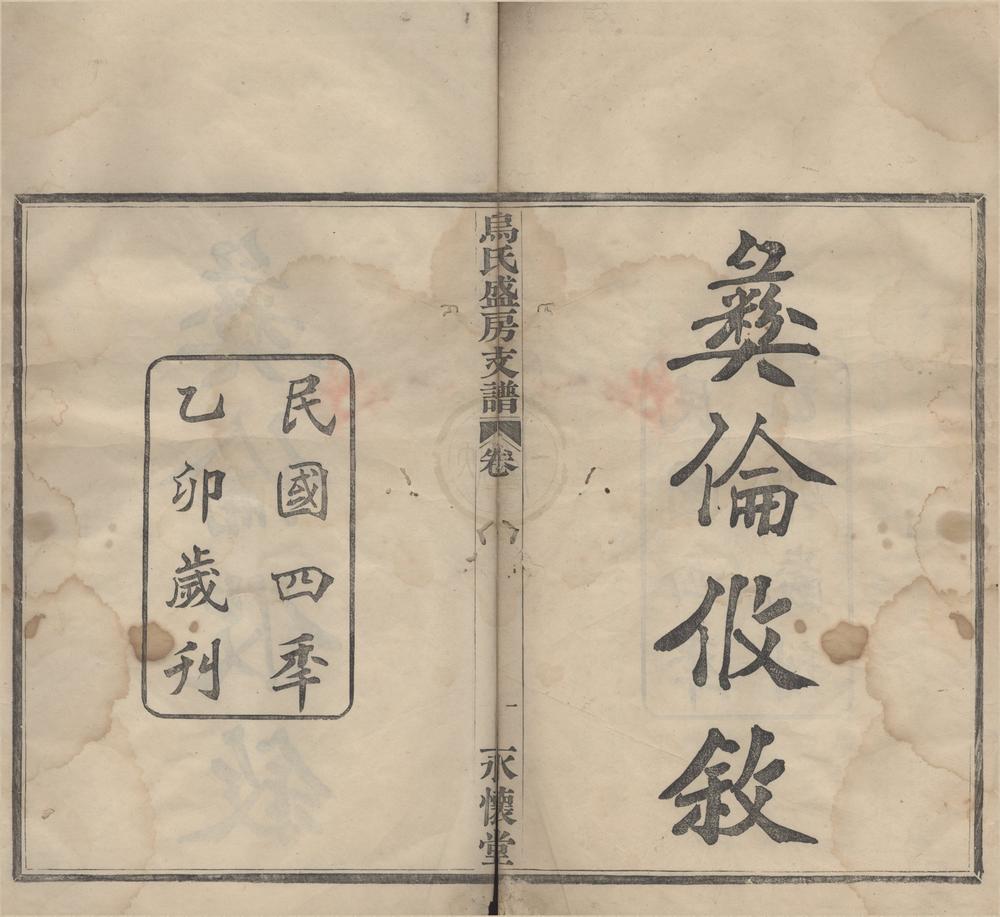 彝倫攸敘
烏氏盛房支譜 卷 一 永懷堂
民國四年
乙卯歲刋